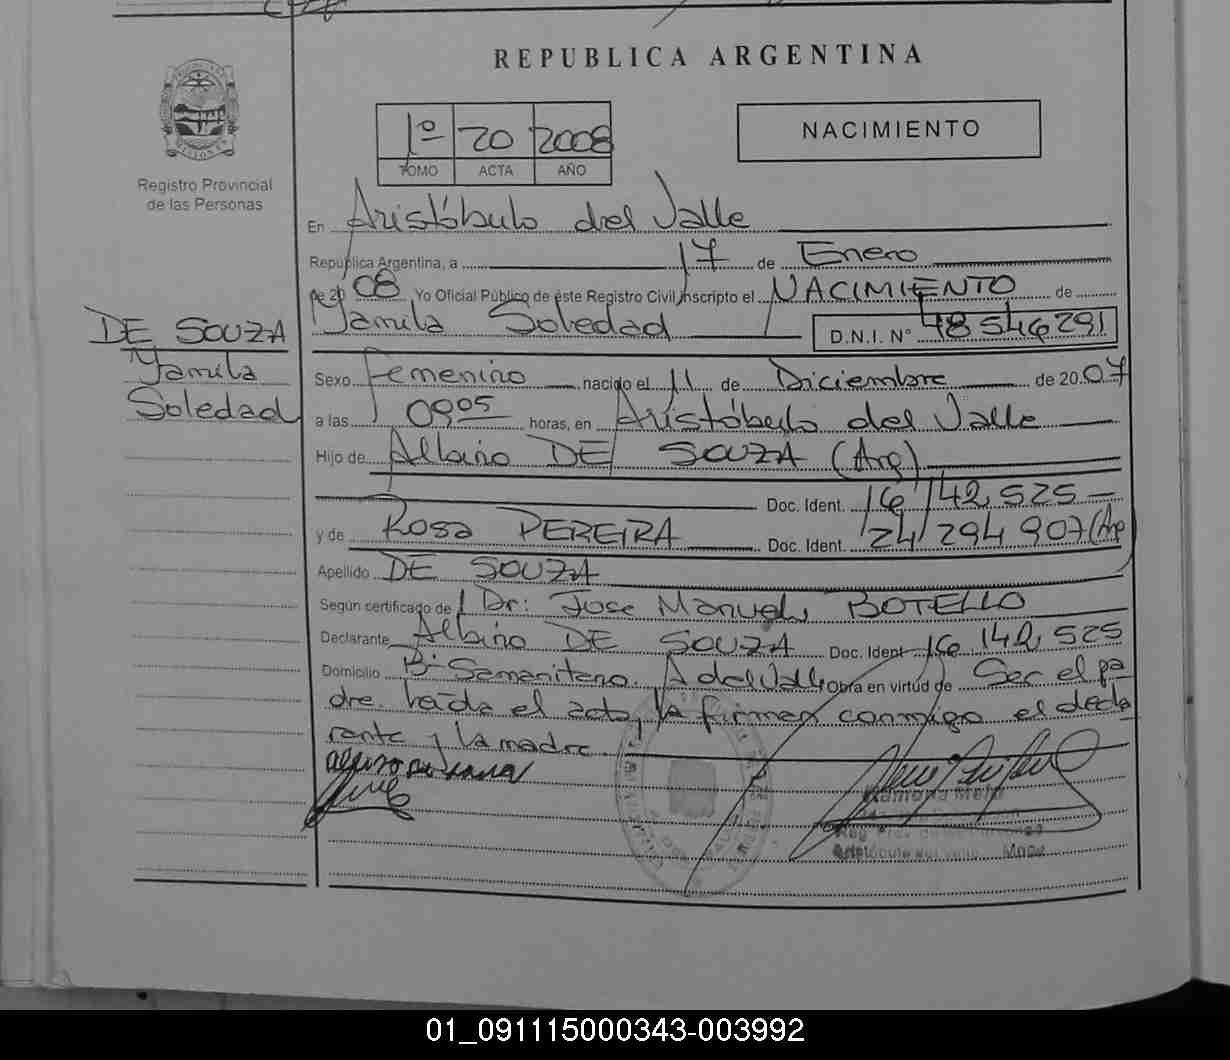 REPUBLICA ARGENTINA
1º 20 2008
TOMO ACTA AÑO
NACIMIENTO
PROVINCIA DE MISIONES
Registro Provincial
de las Personas
En Aristóbulo del Valle
Republica Argentina, a 17 de Enero
de 20 08 Yo Oficial Público de este Registro Civil inscripto el NACIMIENTO de
Yamila Soledad D.N.I. Nº 48546291
DE SOUZA
Yamila
Soledad
Sexo Femenino nacido el 11 de Diciembre de 20 07
a las 09 05 horas, en Aristóbulo del Valle
Hijo de Albino DE SOUZA (Arg)
Doc. Ident. 16 142.525
y de Rosa PEREIRA Doc. Ident. 24 294 907 (Arg
Apellido DE SOUZA
Según certificado de Dr: Jose Manuel BOTELLO
Declarante Albino DE SOUZA Doc. Ident 16 142 525
Domicilio Bº Samaritano. A del Valle Obra en virtud de Ser el pa-
dre. Leída el acta, la firman conmigo el decla
rante y la madre.
Ramona
Aristóbulo del Valle Mnes
01_091115000343-003992